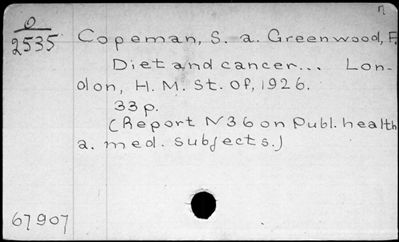 n
O
2535
Copeman, S. a. Greenwood, F.
Diet and cancer... Lon-
don, H. M. St. Of, 1926.
33 p.
(Report N 36 on Publ. health
a. med. subjects.)
67907